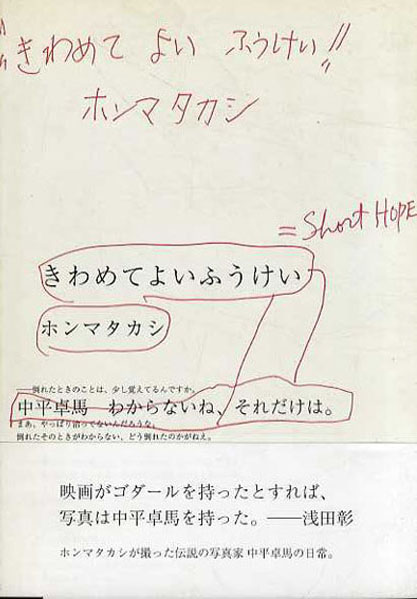 "きわめて よい ふうけい!!"
ホンマタカシ
= Short HOPE
きわめてよいふうけい
ホンマタカシ
——倒れたときのことは、少し覚えてるんですか。
中平卓馬　わからないね、それだけは。
まあ、やっぱり治ってないんだろうな。
倒れたそのときがわからない、どう倒れたのかがねえ。
映画がゴダールを持ったとすれば、
写真は中平卓馬を持った。——浅田彰
ホンマタカシが撮った伝説の写真家 中平卓馬の日常。